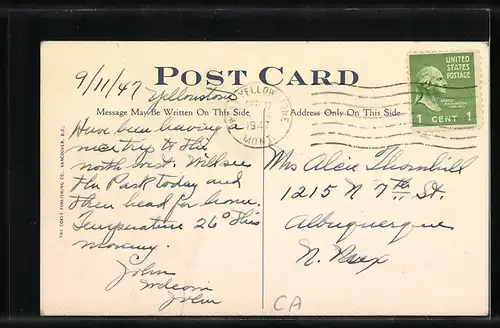 9/11/47
POST CARD
Yellowstone
Message May Be Written On This Side
Have been having a
nice trip to the
north west. Will see
the Park today and
then head for home.
Temperature 26° this
morning.
John
John
THE COAST PUBLISHING CO., VANCOUVER, B.C.
WEST YELLOWSTONE
SEP 12
1947
MONT.
UNITED STATES POSTAGE
1 CENT 1
Address Only On This Side
Mrs Alcie Thornhill
1215 N 7th St.
Albuquerque
N. Mex
CA